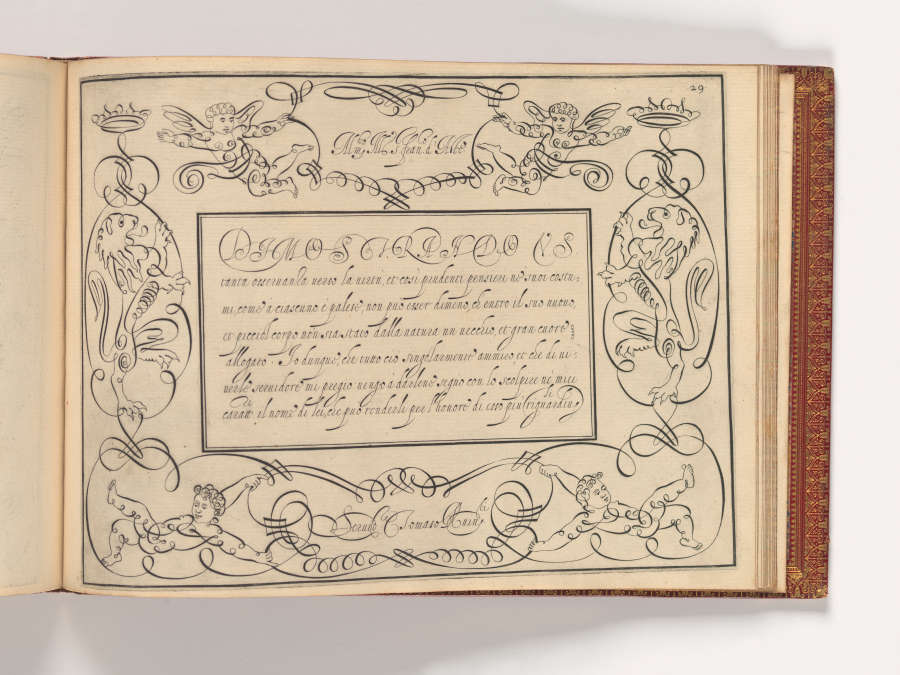 29
DIMOSTRANDO V.S.
tanta osseruanza uerso la uertù, et così prudenti pensieri ne suoi costu:
mi, come à ciascuno è palese, non può esser dimeno, ch'entro il suo nuouo,
et picciol corpo non sia stato dalla natura un uecchio, et gran cuore
allogato. Io dunque, che tutto ciò singolarmente ammiro, et che di ui:
uerle seruidore mi pregio uengo à darlene segno con lo scolpire ne' miei
caratt il nome di lei, che può renderli per l'honore di esso più riguardeu
Tomaso